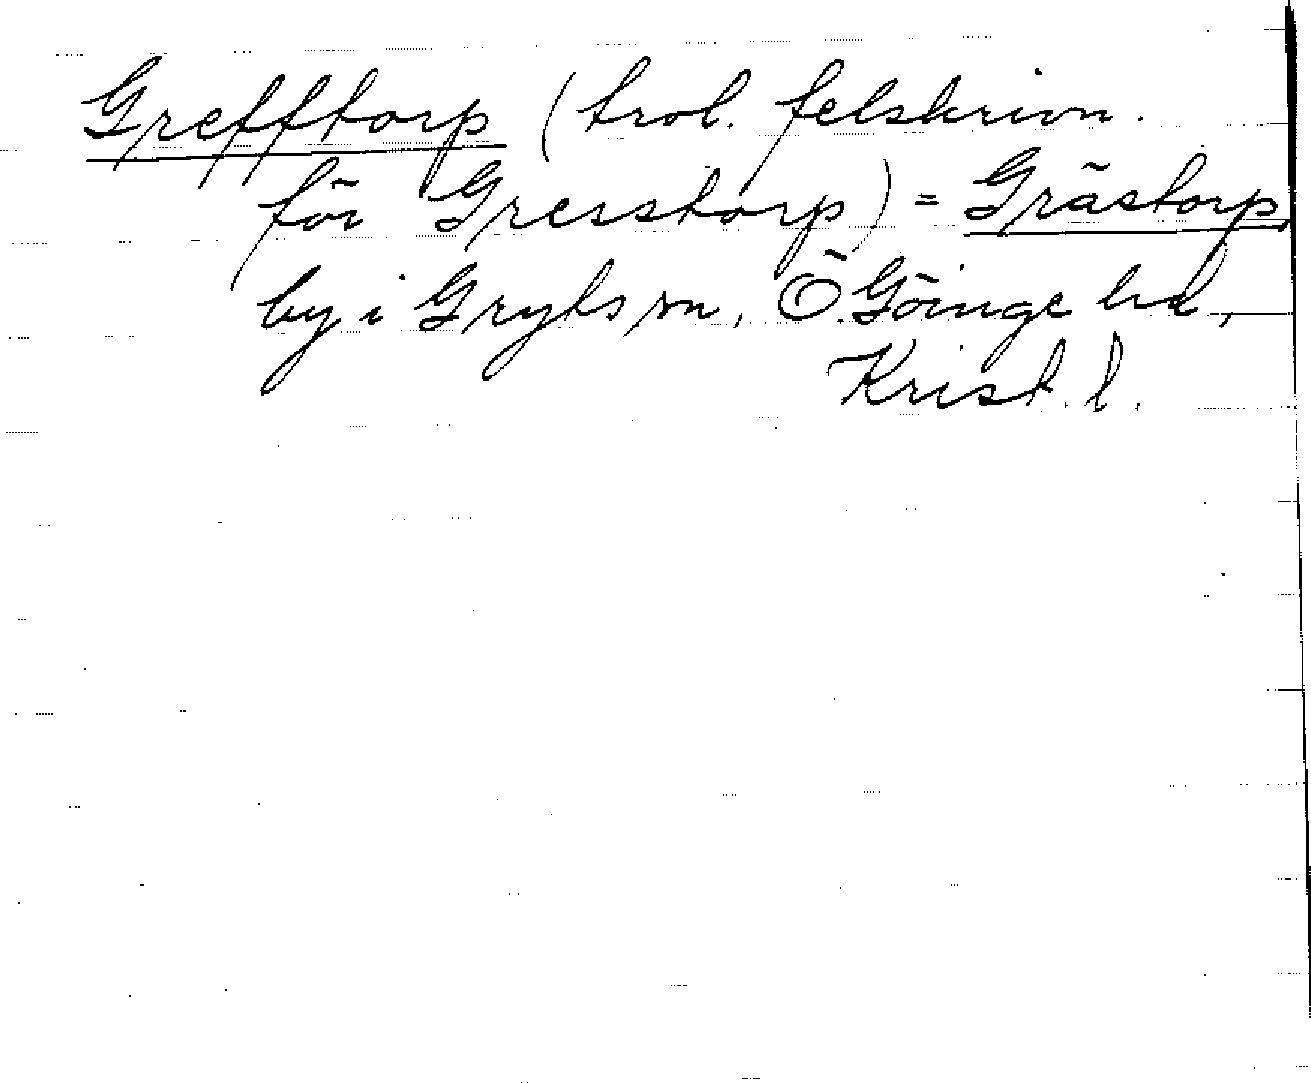 Grefftorp (trol. felskrivn.
för Gresstorp) = Grästorp,
by i Gryts sn, Ö. Göinge hd,
Krist. l.